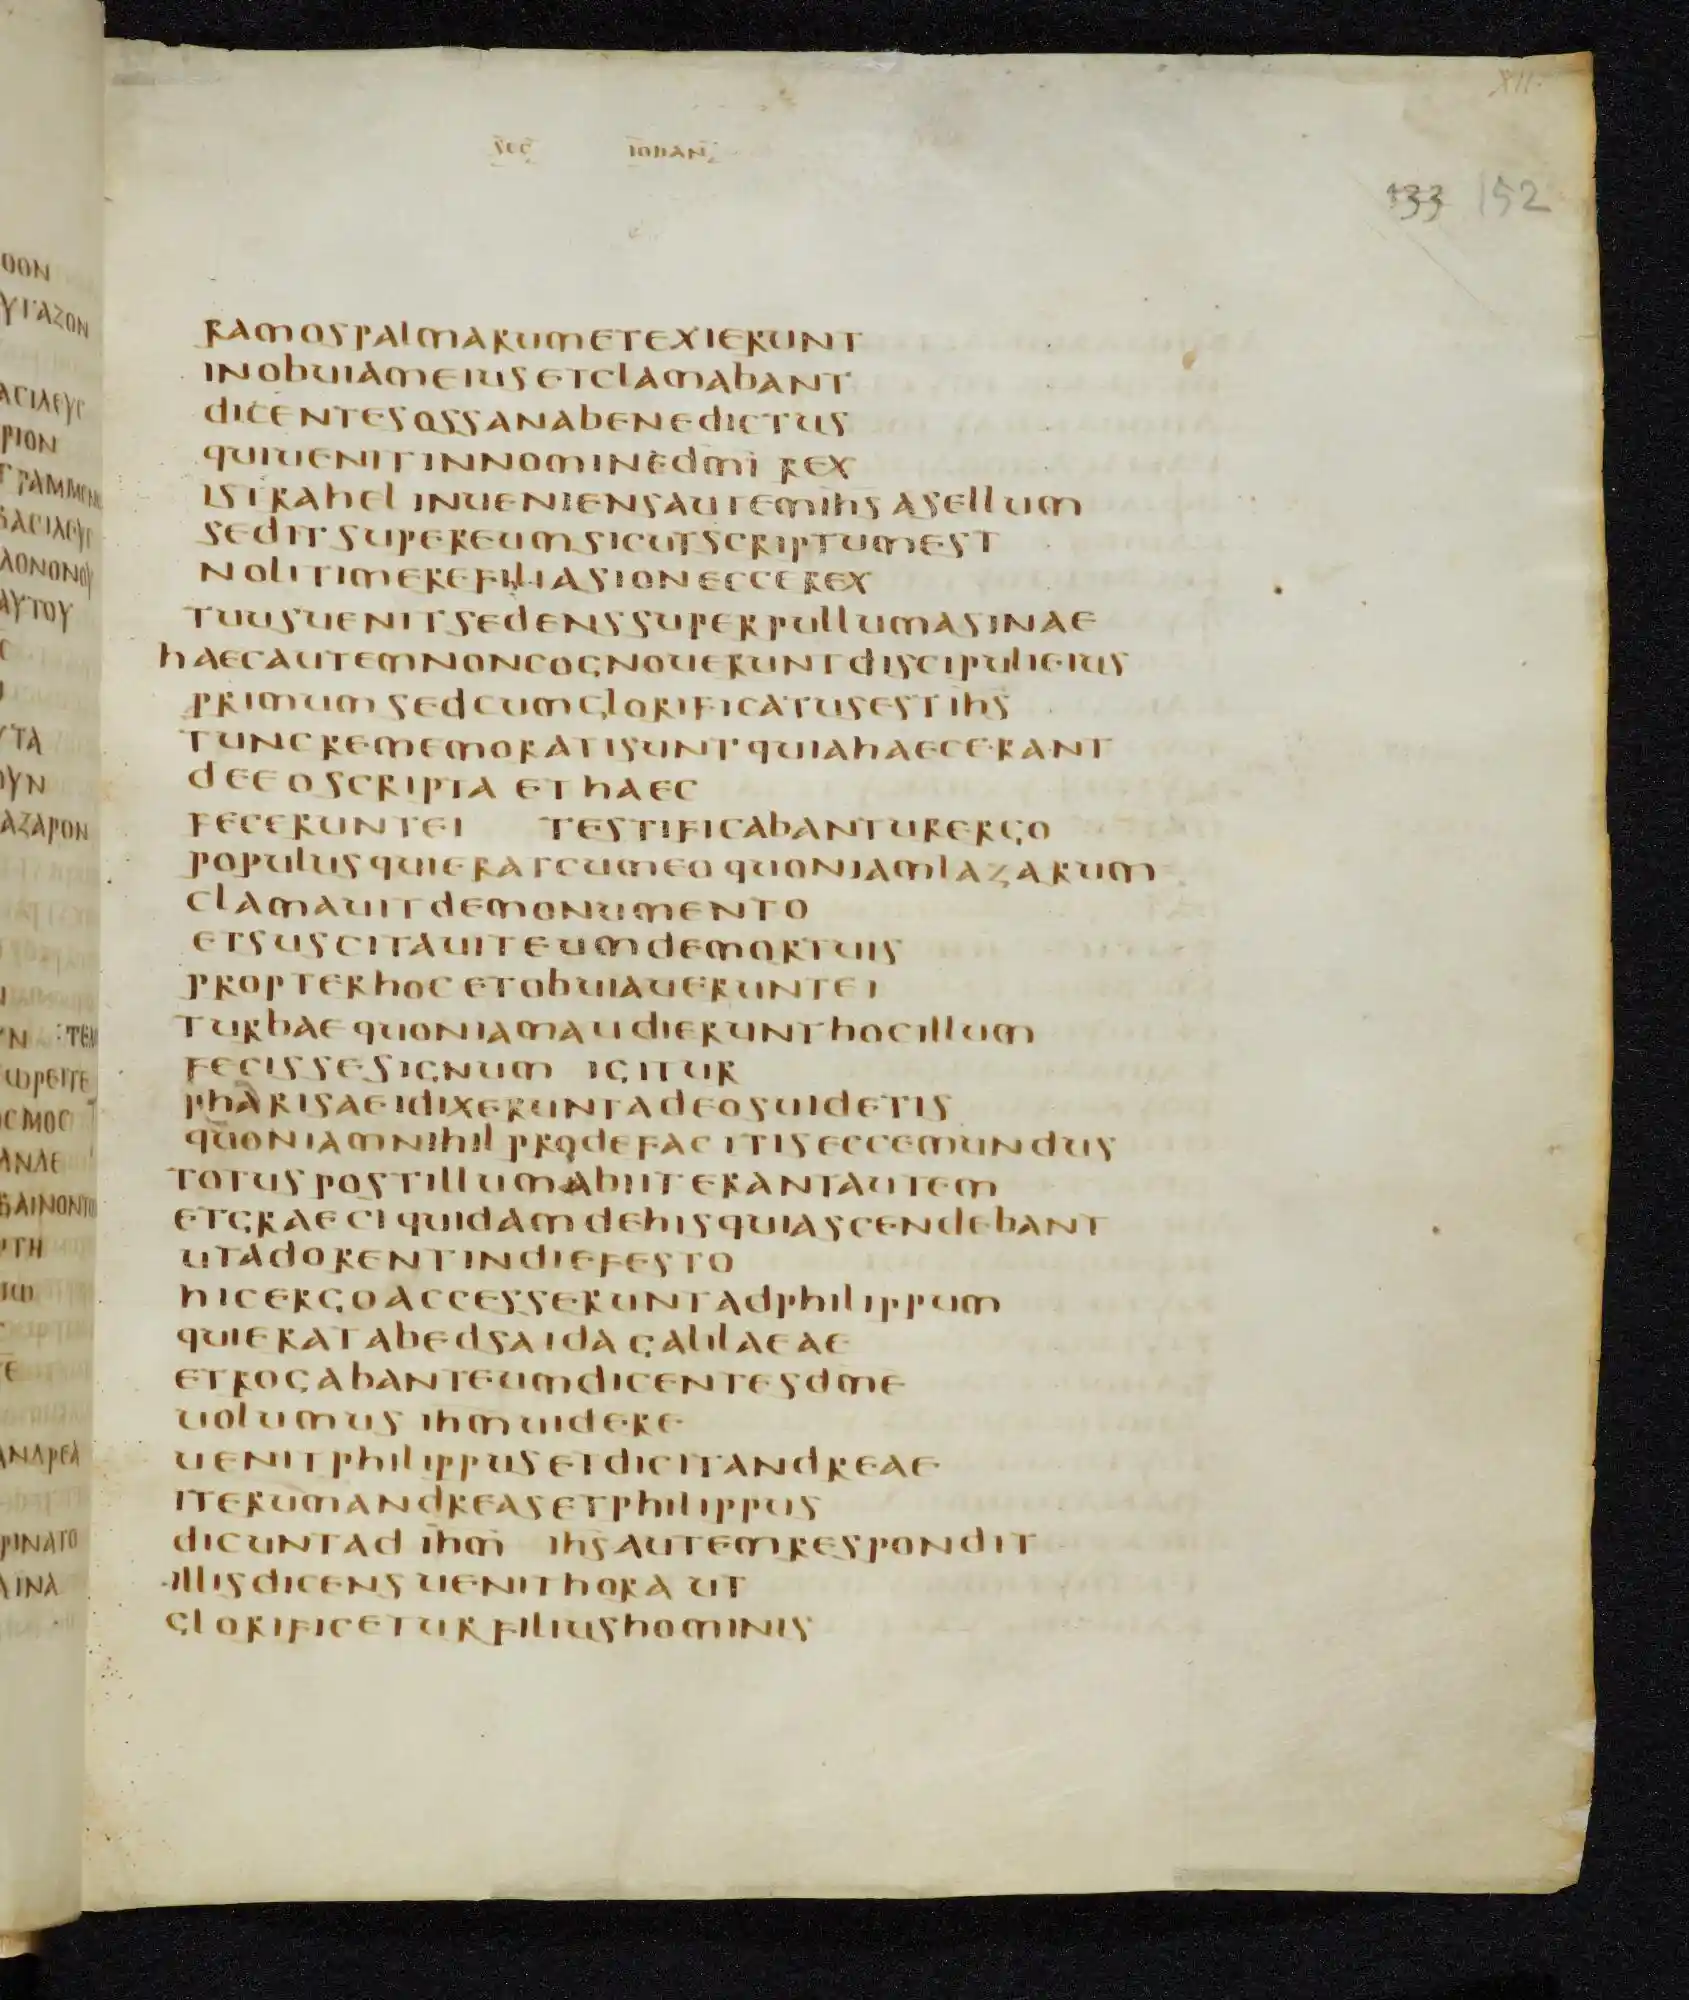 XII.
sec̄ iohan̄
133 152
ramospalmarumetexierunt
inobuiameiusetclamabant
dicentesossanabenedictus
quiuenitinnominedm̄i rex
istrahel inueniensautemih̄s asellum
seditsupereumsicutscriptumest
nolitimerefiliasioneccerex
tuusuenitsedenssuperpullumasinae
haecautemnoncognoueruntdiscipulieius
primum sedcumglorificatusestih̄s
tuncrememoratisuntquiahaecerant
deeoscripta ethaec
feceruntei testificabanturergo
populusquieratcumeoquoniamlazarum
clamauitdemonumento
etsuscitauiteumdemortuis
propterhocetobuiaueruntei
turbaequoniamaudierunthocillum
fecissesignum igitur
pharisaeidixeruntadeosuidetis
quoniamnihilprodefacitiseccemundus
totuspostillumabiiterantautem
etgraeciquidamdehisquiascendebant
utadorentindiefesto
hicergoaccesseruntadphilippum
quieratabedsaidagalilaeae
etrogabanteumdicentesdm̄e
uolumus ihm̄uidere
uenitphilippusetdicitandreae
iterumandreasetphilippus
dicuntad ihm̄ ih̄sautemrespondit
illisdicens uenithora ut
glorificeturfiliushominis
θον
υγαζον
ασιλευς
ριον
βασιλευς
αυτου
αζαρον
ωρειτε
οσμος
βαινοντω
ρτη
ανδρεα